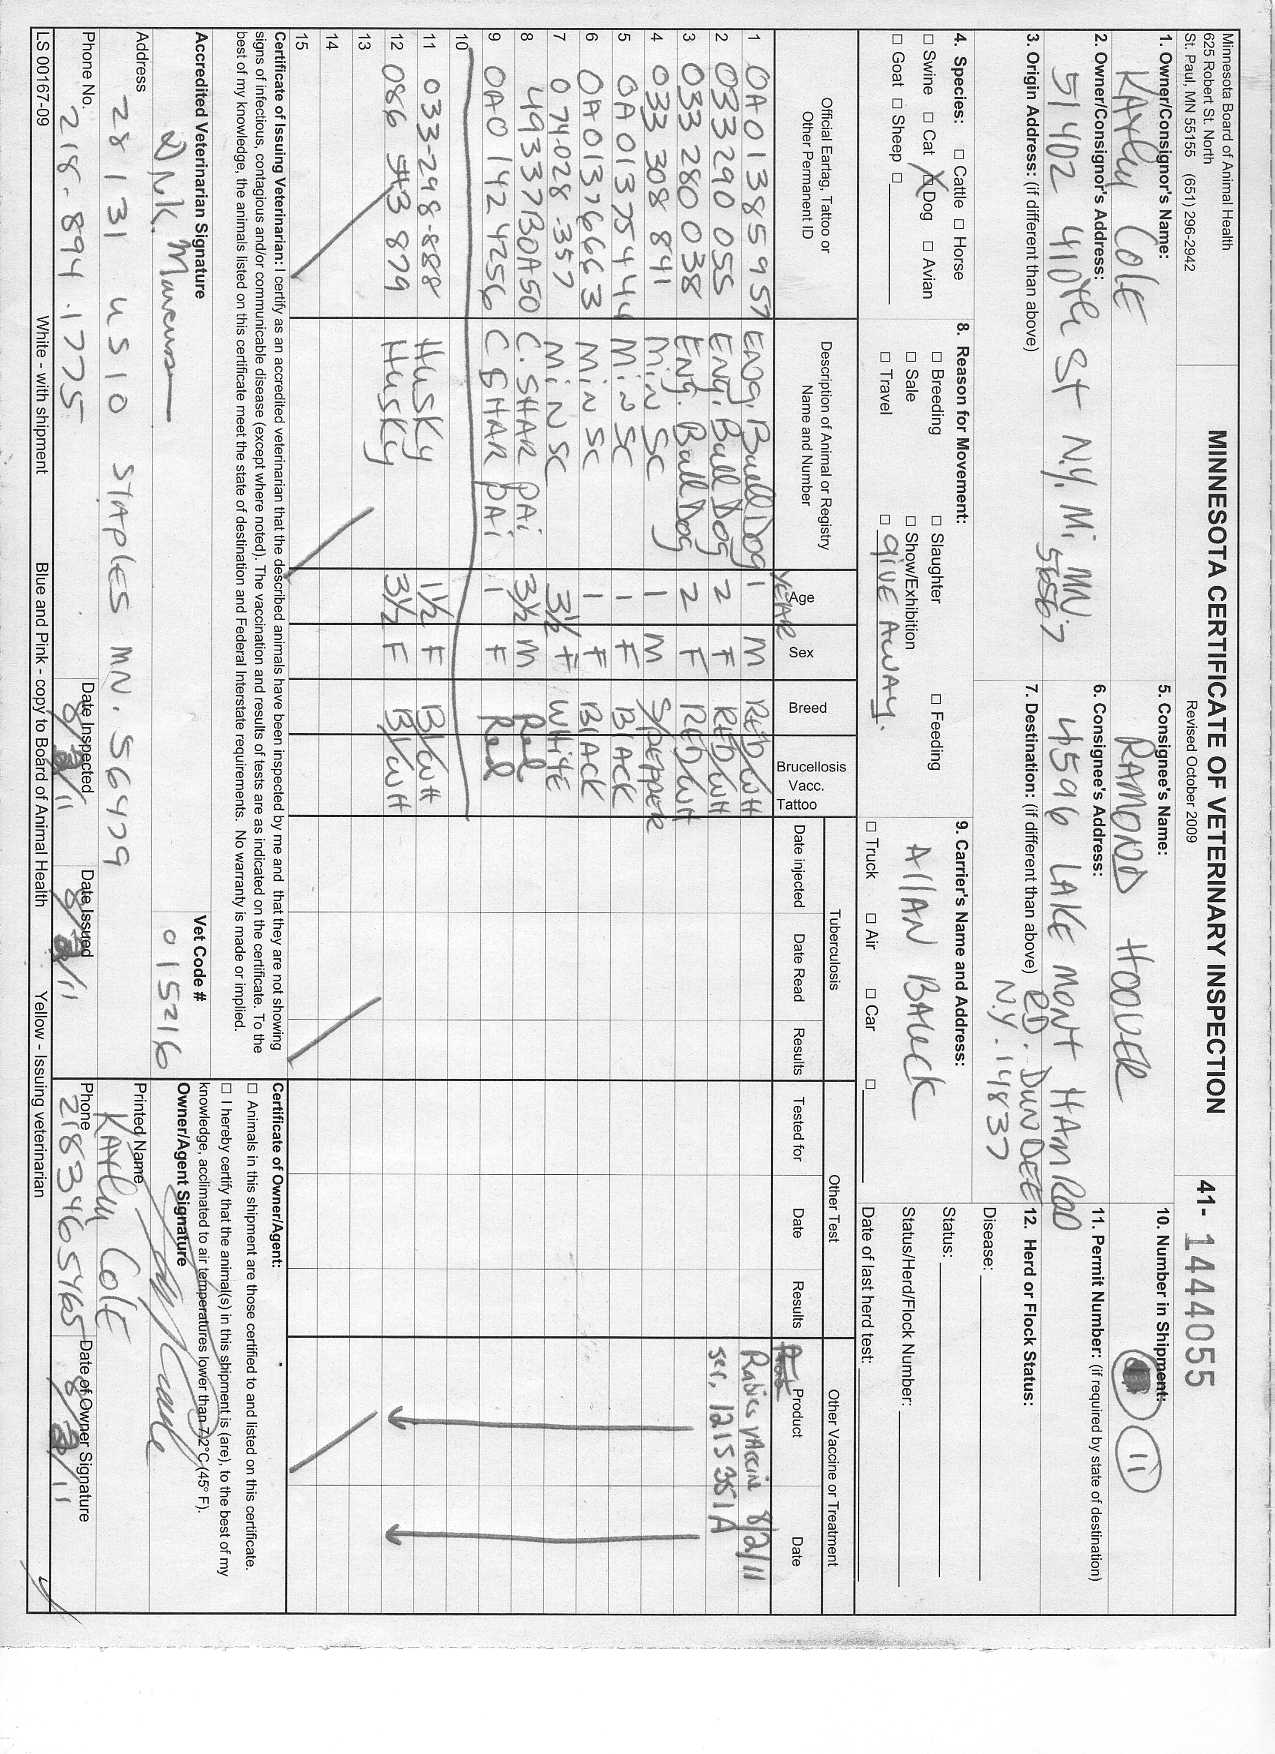 Minnesota Board of Animal Health
625 Robert St. North
St. Paul, MN 55155 (651) 296-2942
MINNESOTA CERTIFICATE OF VETERINARY INSPECTION
Revised October 2009
41- 1444055
1. Owner/Consignor's Name:
KAYLEN COLE
5. Consignee's Name:
RAMOND HOOVER
10. Number in Shipment:
11
2. Owner/Consignor's Address:
51402 410th ST N.Y. Mi MN.
56567
6. Consignee's Address:
4596 LAKE MONT HAMROD
11. Permit Number: (if required by state of destination)
3. Origin Address: (if different than above)
7. Destination: (if different than above) RD. DUNDEE
N.Y. 14837
12. Herd or Flock Status:
Disease:
Status:
Status/Herd/Flock Number:
Date of last herd test:
4. Species: □ Cattle □ Horse
□ Swine □ Cat X Dog □ Avian
□ Goat □ Sheep □
8. Reason for Movement:
□ Breeding □ Slaughter □ Feeding
□ Sale □ Show/Exhibition
□ Travel □ GIVE AWAY.
9. Carrier's Name and Address:
AllAN BAUCK
□ Truck □ Air □ Car □
Official Eartag, Tattoo or
Other Permanent ID
Description of Animal or Registry
Name and Number
Age
YEAR
Sex
Breed
Brucellosis
Vacc.
Tattoo
Tuberculosis
Date injected
Date Read
Results
Other Test
Tested for
Date
Results
Other Vaccine or Treatment
Product
Date
1 0A01385957 ENG. Bull Dog 1 M RED/WH Rabies vaccine 8/2/11
2 033290055 ENG. Bull Dog 2 F RED/WH ser. 1215351A
3 033280038 Eng. Bull Dog 2 F RED/WH
4 033 308 841 Min Sc 1 M S/PEPPER
5 0A01375444 MiN SC 1 F BlACK
6 0A01376663 MiN SC 1 F BlACK
7 074-028-357 MiN SC 3½ F WHITE
8 49337B0A50 C. SHAR PAi 3½ M Red
9 0A0 142 4256 C SHAR PAi 1 F Red
10
11 033-298-888 HUSKY 1½ F B/WH
12 086 543 879 HUSKY 3½ F B/WH
13
14
15
Certificate of Issuing Veterinarian: I certify as an accredited veterinarian that the described animals have been inspected by me and that they are not showing
signs of infectious, contagious and/or communicable disease (except where noted). The vaccination and results of tests are as indicated on the certificate. To the
best of my knowledge, the animals listed on this certificate meet the state of destination and Federal Interstate requirements. No warranty is made or implied.
Certificate of Owner/Agent:
□ Animals in this shipment are those certified to and listed on this certificate.
□ I hereby certify that the animal(s) in this shipment is (are), to the best of my
knowledge, acclimated to air temperatures lower than 7.2°C (45° F).
Accredited Veterinarian Signature
Vet Code #
015216
Owner/Agent Signature
Address
28131 US 10 STAPLES MN. 56479
Printed Name
KAYLEN COLE
Phone No.
218-894-1775
Date Inspected
8/2/11
Date Issued
8/2/11
Phone
2183465465
Date of Owner Signature
8/2/11
LS 00167-09
White - with shipment
Blue and Pink - copy to Board of Animal Health
Yellow - Issuing veterinarian